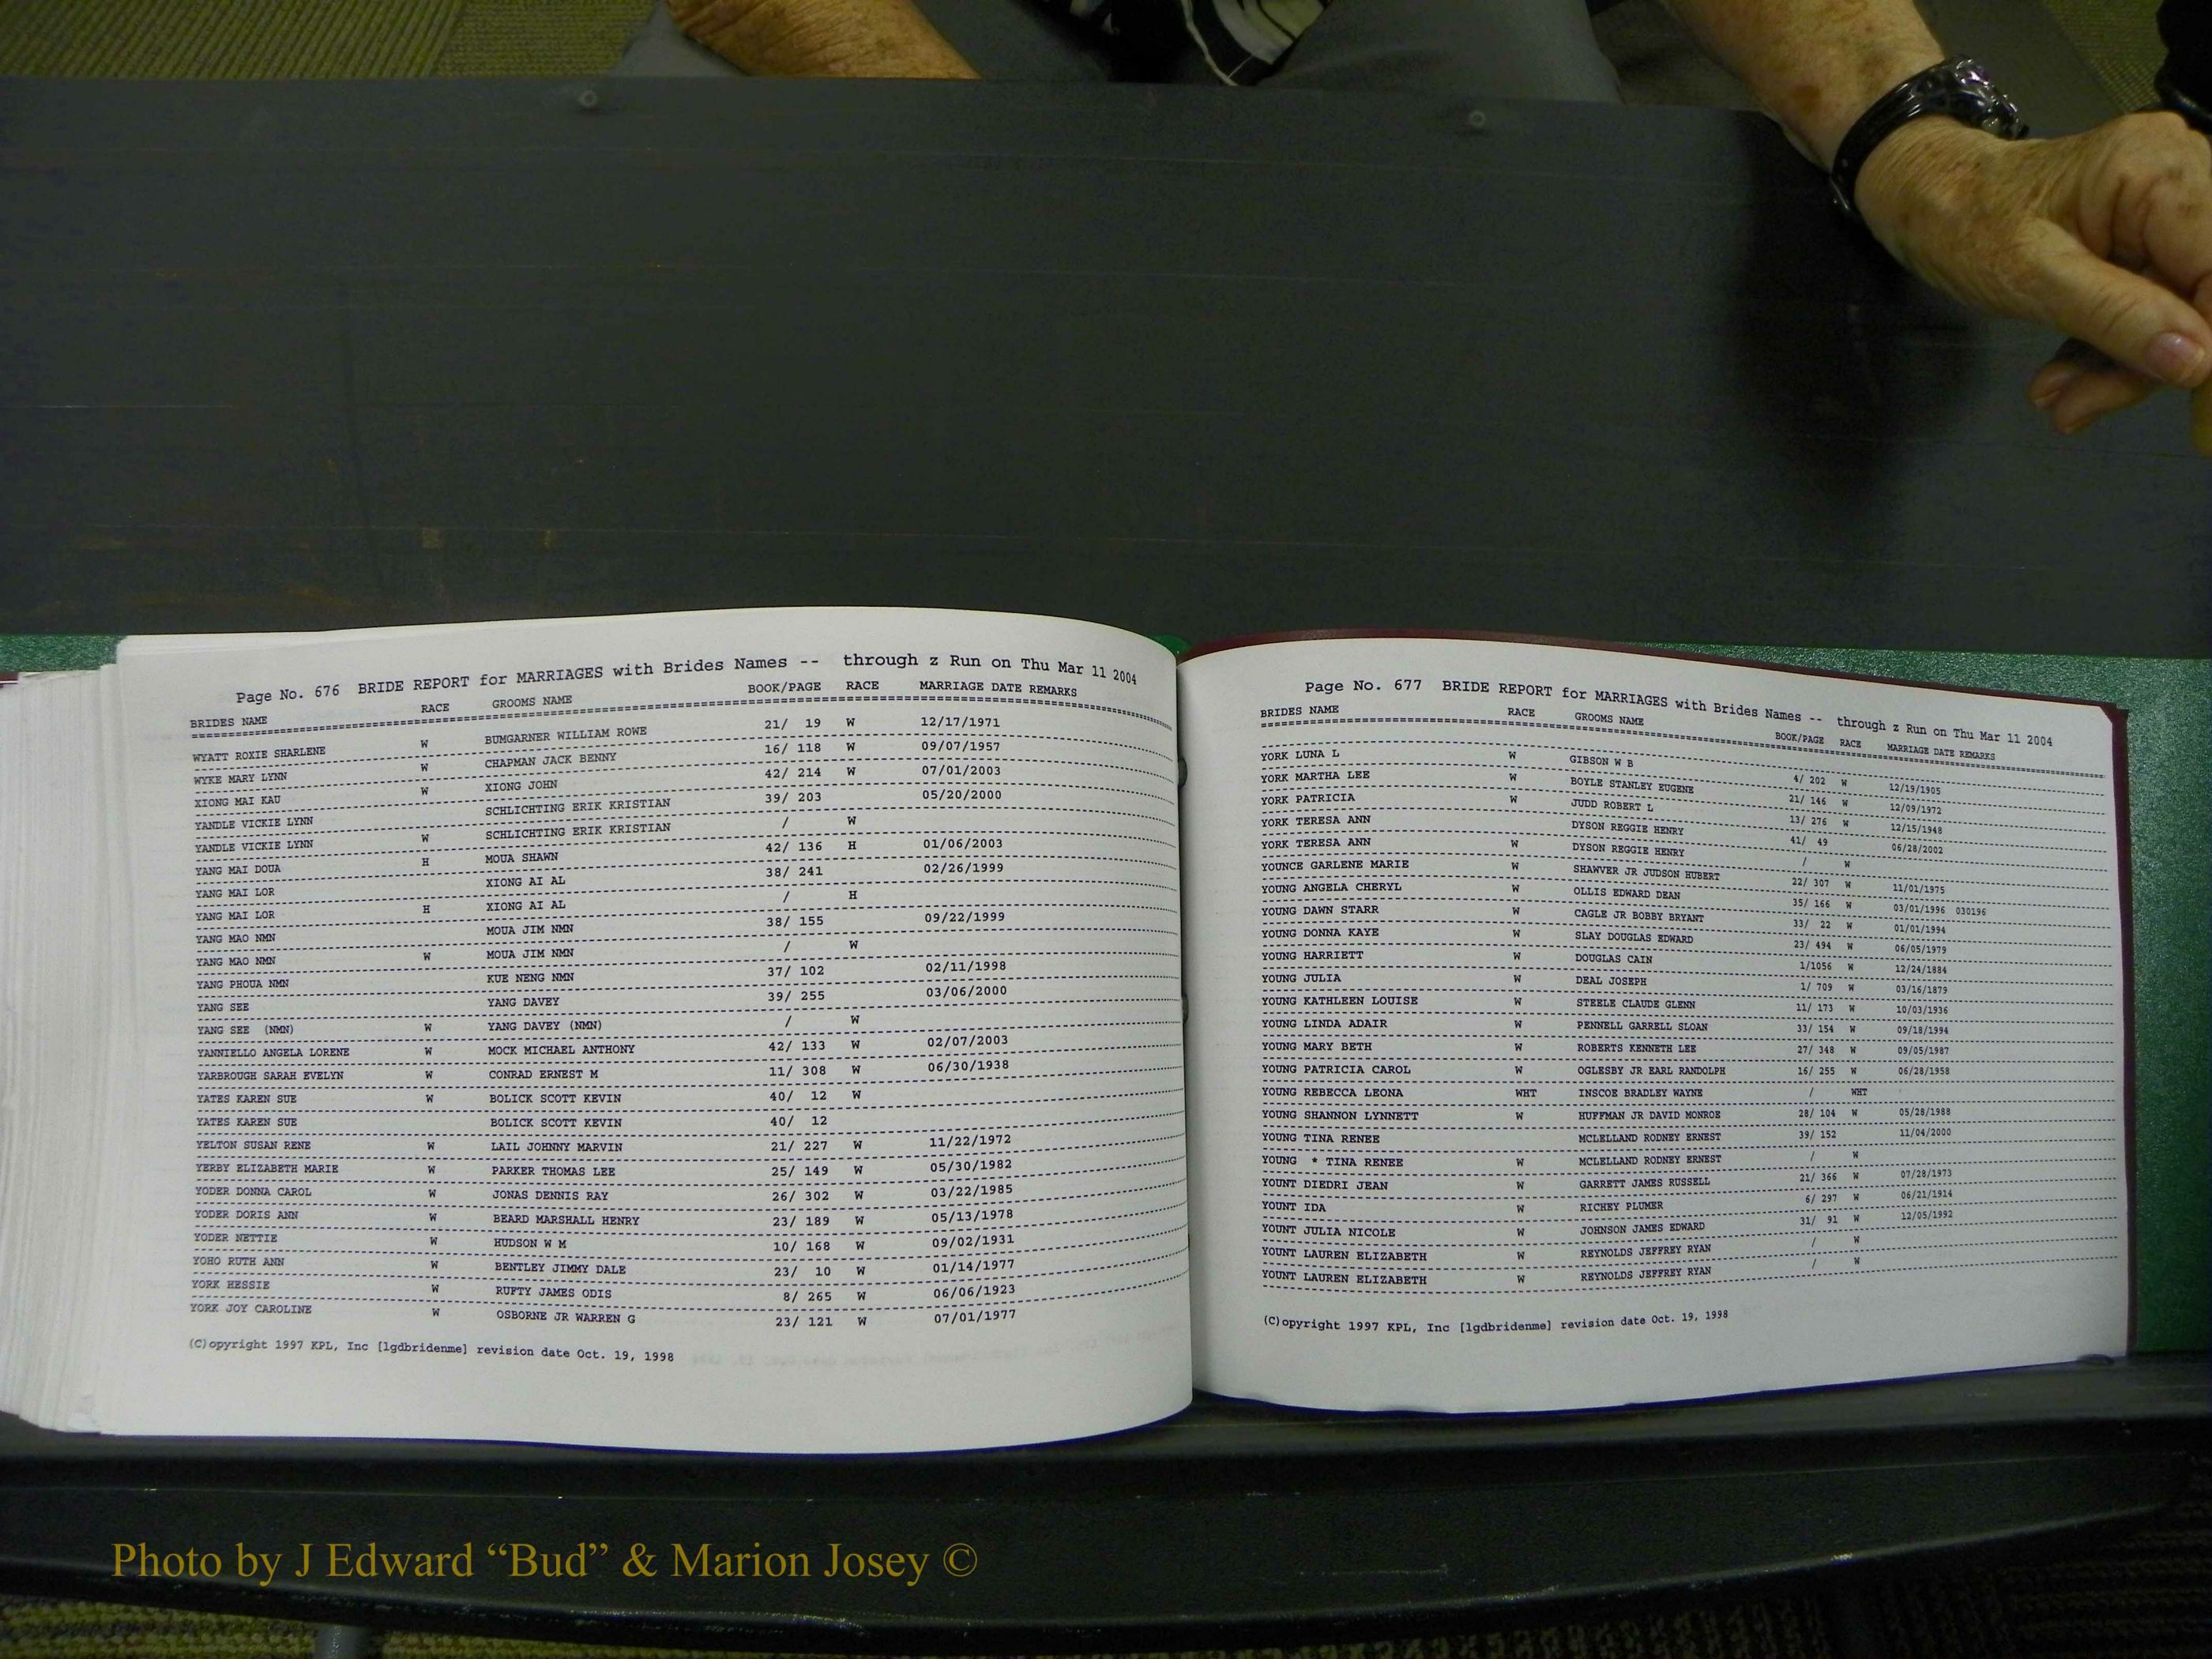 Page No. 676 BRIDE REPORT for MARRIAGES with Brides Names -- through z Run on Thu Mar 11 2004
BRIDES NAME RACE GROOMS NAME BOOK/PAGE RACE MARRIAGE DATE REMARKS
WYATT ROXIE SHARLENE W BUMGARNER WILLIAM ROWE 21/ 19 W 12/17/1971
WYKE MARY LYNN W CHAPMAN JACK BENNY 16/ 118 W 09/07/1957
XIONG MAI KAU W XIONG JOHN 42/ 214 W 07/01/2003
YANDLE VICKIE LYNN SCHLICHTING ERIK KRISTIAN 39/ 203 05/20/2000
YANDLE VICKIE LYNN W SCHLICHTING ERIK KRISTIAN / W
YANG MAI DOUA H MOUA SHAWN 42/ 136 H 01/06/2003
YANG MAI LOR XIONG AI AL 38/ 241 02/26/1999
YANG MAI LOR H XIONG AI AL / H
YANG MAO NMN MOUA JIM NMN 38/ 155 09/22/1999
YANG MAO NMN W MOUA JIM NMN / W
YANG PHOUA NMN KUE NENG NMN 37/ 102 02/11/1998
YANG SEE YANG DAVEY 39/ 255 03/06/2000
YANG SEE (NMN) W YANG DAVEY (NMN) / W
YANNIELLO ANGELA LORENE W MOCK MICHAEL ANTHONY 42/ 133 W 02/07/2003
YARBROUGH SARAH EVELYN W CONRAD ERNEST M 11/ 308 W 06/30/1938
YATES KAREN SUE W BOLICK SCOTT KEVIN 40/ 12 W
YATES KAREN SUE BOLICK SCOTT KEVIN 40/ 12
YELTON SUSAN RENE W LAIL JOHNNY MARVIN 21/ 227 W 11/22/1972
YERBY ELIZABETH MARIE W PARKER THOMAS LEE 25/ 149 W 05/30/1982
YODER DONNA CAROL W JONAS DENNIS RAY 26/ 302 W 03/22/1985
YODER DORIS ANN W BEARD MARSHALL HENRY 23/ 189 W 05/13/1978
YODER NETTIE W HUDSON W M 10/ 168 W 09/02/1931
YOHO RUTH ANN W BENTLEY JIMMY DALE 23/ 10 W 01/14/1977
YORK HESSIE W RUFTY JAMES ODIS 8/ 265 W 06/06/1923
YORK JOY CAROLINE W OSBORNE JR WARREN G 23/ 121 W 07/01/1977
(C)opyright 1997 KPL, Inc [lgdbridenme] revision date Oct. 19, 1998
Page No. 677 BRIDE REPORT for MARRIAGES with Brides Names -- through z Run on Thu Mar 11 2004
BRIDES NAME RACE GROOMS NAME BOOK/PAGE RACE MARRIAGE DATE REMARKS
YORK LUNA L W GIBSON W B 4/ 202 W 12/19/1905
YORK MARTHA LEE W BOYLE STANLEY EUGENE 21/ 146 W 12/09/1972
YORK PATRICIA W JUDD ROBERT L 13/ 276 W 12/15/1948
YORK TERESA ANN DYSON REGGIE HENRY 41/ 49 06/28/2002
YORK TERESA ANN W DYSON REGGIE HENRY / W
YOUNCE GARLENE MARIE W SHAWVER JR JUDSON HUBERT 22/ 307 W 11/01/1975
YOUNG ANGELA CHERYL W OLLIS EDWARD DEAN 35/ 166 W 03/01/1996 030196
YOUNG DAWN STARR W CAGLE JR BOBBY BRYANT 33/ 22 W 01/01/1994
YOUNG DONNA KAYE W SLAY DOUGLAS EDWARD 23/ 494 W 06/05/1979
YOUNG HARRIETT W DOUGLAS CAIN 1/1056 W 12/24/1884
YOUNG JULIA W DEAL JOSEPH 1/ 709 W 03/16/1879
YOUNG KATHLEEN LOUISE W STEELE CLAUDE GLENN 11/ 173 W 10/03/1936
YOUNG LINDA ADAIR W PENNELL GARRELL SLOAN 33/ 154 W 09/18/1994
YOUNG MARY BETH W ROBERTS KENNETH LEE 27/ 348 W 09/05/1987
YOUNG PATRICIA CAROL W OGLESBY JR EARL RANDOLPH 16/ 255 W 06/28/1958
YOUNG REBECCA LEONA WHT INSCOE BRADLEY WAYNE / WHT
YOUNG SHANNON LYNNETT W HUFFMAN JR DAVID MONROE 28/ 104 W 05/28/1988
YOUNG TINA RENEE MCLELLAND RODNEY ERNEST 39/ 152 11/04/2000
YOUNG * TINA RENEE W MCLELLAND RODNEY ERNEST / W
YOUNT DIEDRI JEAN W GARRETT JAMES RUSSELL 21/ 366 W 07/28/1973
YOUNT IDA W RICHEY PLUMER 6/ 297 W 06/21/1914
YOUNT JULIA NICOLE W JOHNSON JAMES EDWARD 31/ 91 W 12/05/1992
YOUNT LAUREN ELIZABETH W REYNOLDS JEFFREY RYAN / W
YOUNT LAUREN ELIZABETH W REYNOLDS JEFFREY RYAN / W
(C)opyright 1997 KPL, Inc [lgdbridenme] revision date Oct. 19, 1998
Photo by J Edward “Bud” & Marion Josey ©